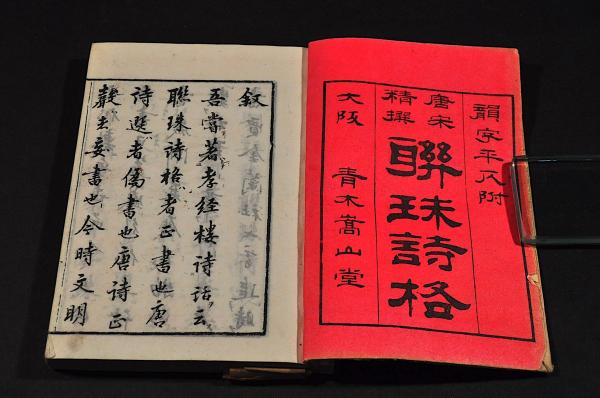 韻字平仄附
唐宋
精撰
聯珠詩格
大阪 青木嵩山堂
叙
吾嘗著孝經樓詩話云
聯珠詩格者正書也唐
詩選者偽書也唐詩正
妄書也今時文明